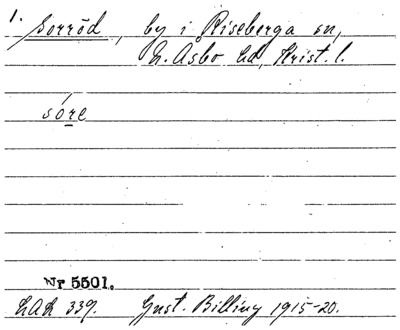 1.
Sorröd, by i Riseberga sn,
N. Åsbo hd, Krist. l.
sóre
Nr 5501.
LAL 339. Gust. Billing 1915-20.